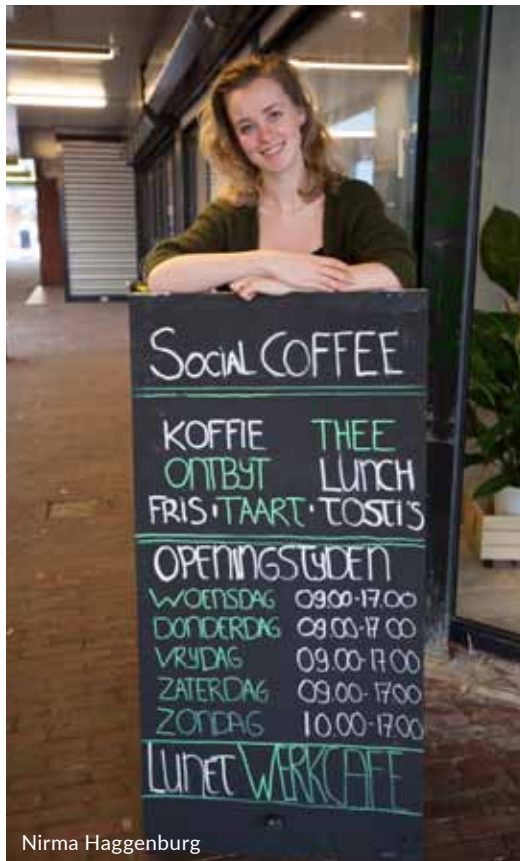 Social COFFEE
KOFFIE THEE
ONTBYT LUNCH
FRIS · TAART · TOSTI'S
OPENINGSTYDEN
WOENSDAG 09.00-17.00
DONDERDAG 09.00-17 00
VRYDAG 09.00-17 00
ZATERDAG 09.00-1700
ZONDAG 10.00-17.00
LUNET WERKCAFE
Nirma Haggenburg